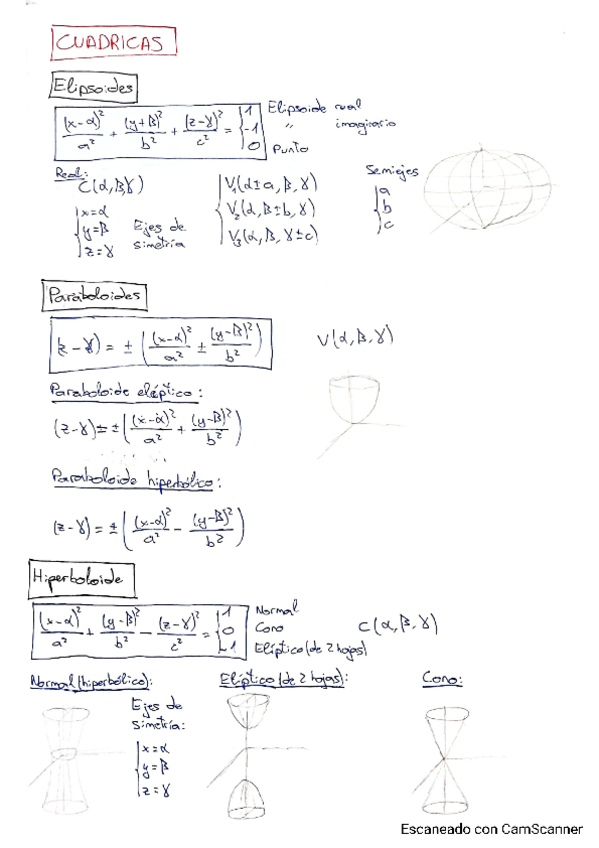 CUADRICAS
Elipsoides
(x-α)²/a² + (y+β)²/b² + (z-γ)²/c² = { 1 Elipsoide real
-1 " imaginario
0 Punto
Real: C(α,β,γ)
{ x=α
y=β
z=γ
Ejes de
simetría
{ V₁(α±a, β, γ)
V₂(α, β±b, γ)
V₃(α, β, γ±c)
Semiejes
{ a
b
c
Paraboloides
(z-γ) = ± ( (x-α)²/a² ± (y-β)²/b² )
V(α,β,γ)
Paraboloide elíptico:
(z-γ)=±( (x-α)²/a² + (y-β)²/b² )
Paraboloide hiperbólico:
(z-γ) = ± ( (x-α)²/a² - (y-β)²/b² )
Hiperboloide
(x-α)²/a² + (y-β)²/b² - (z-γ)²/c² = { 1 Normal
0 Cono
-1 Elíptico (de 2 hojas)
C(α,β,γ)
Normal (hiperbólico): Elíptico (de 2 hojas): Cono:
Ejes de
simetría:
{ x=α
y=β
z=γ
Escaneado con CamScanner